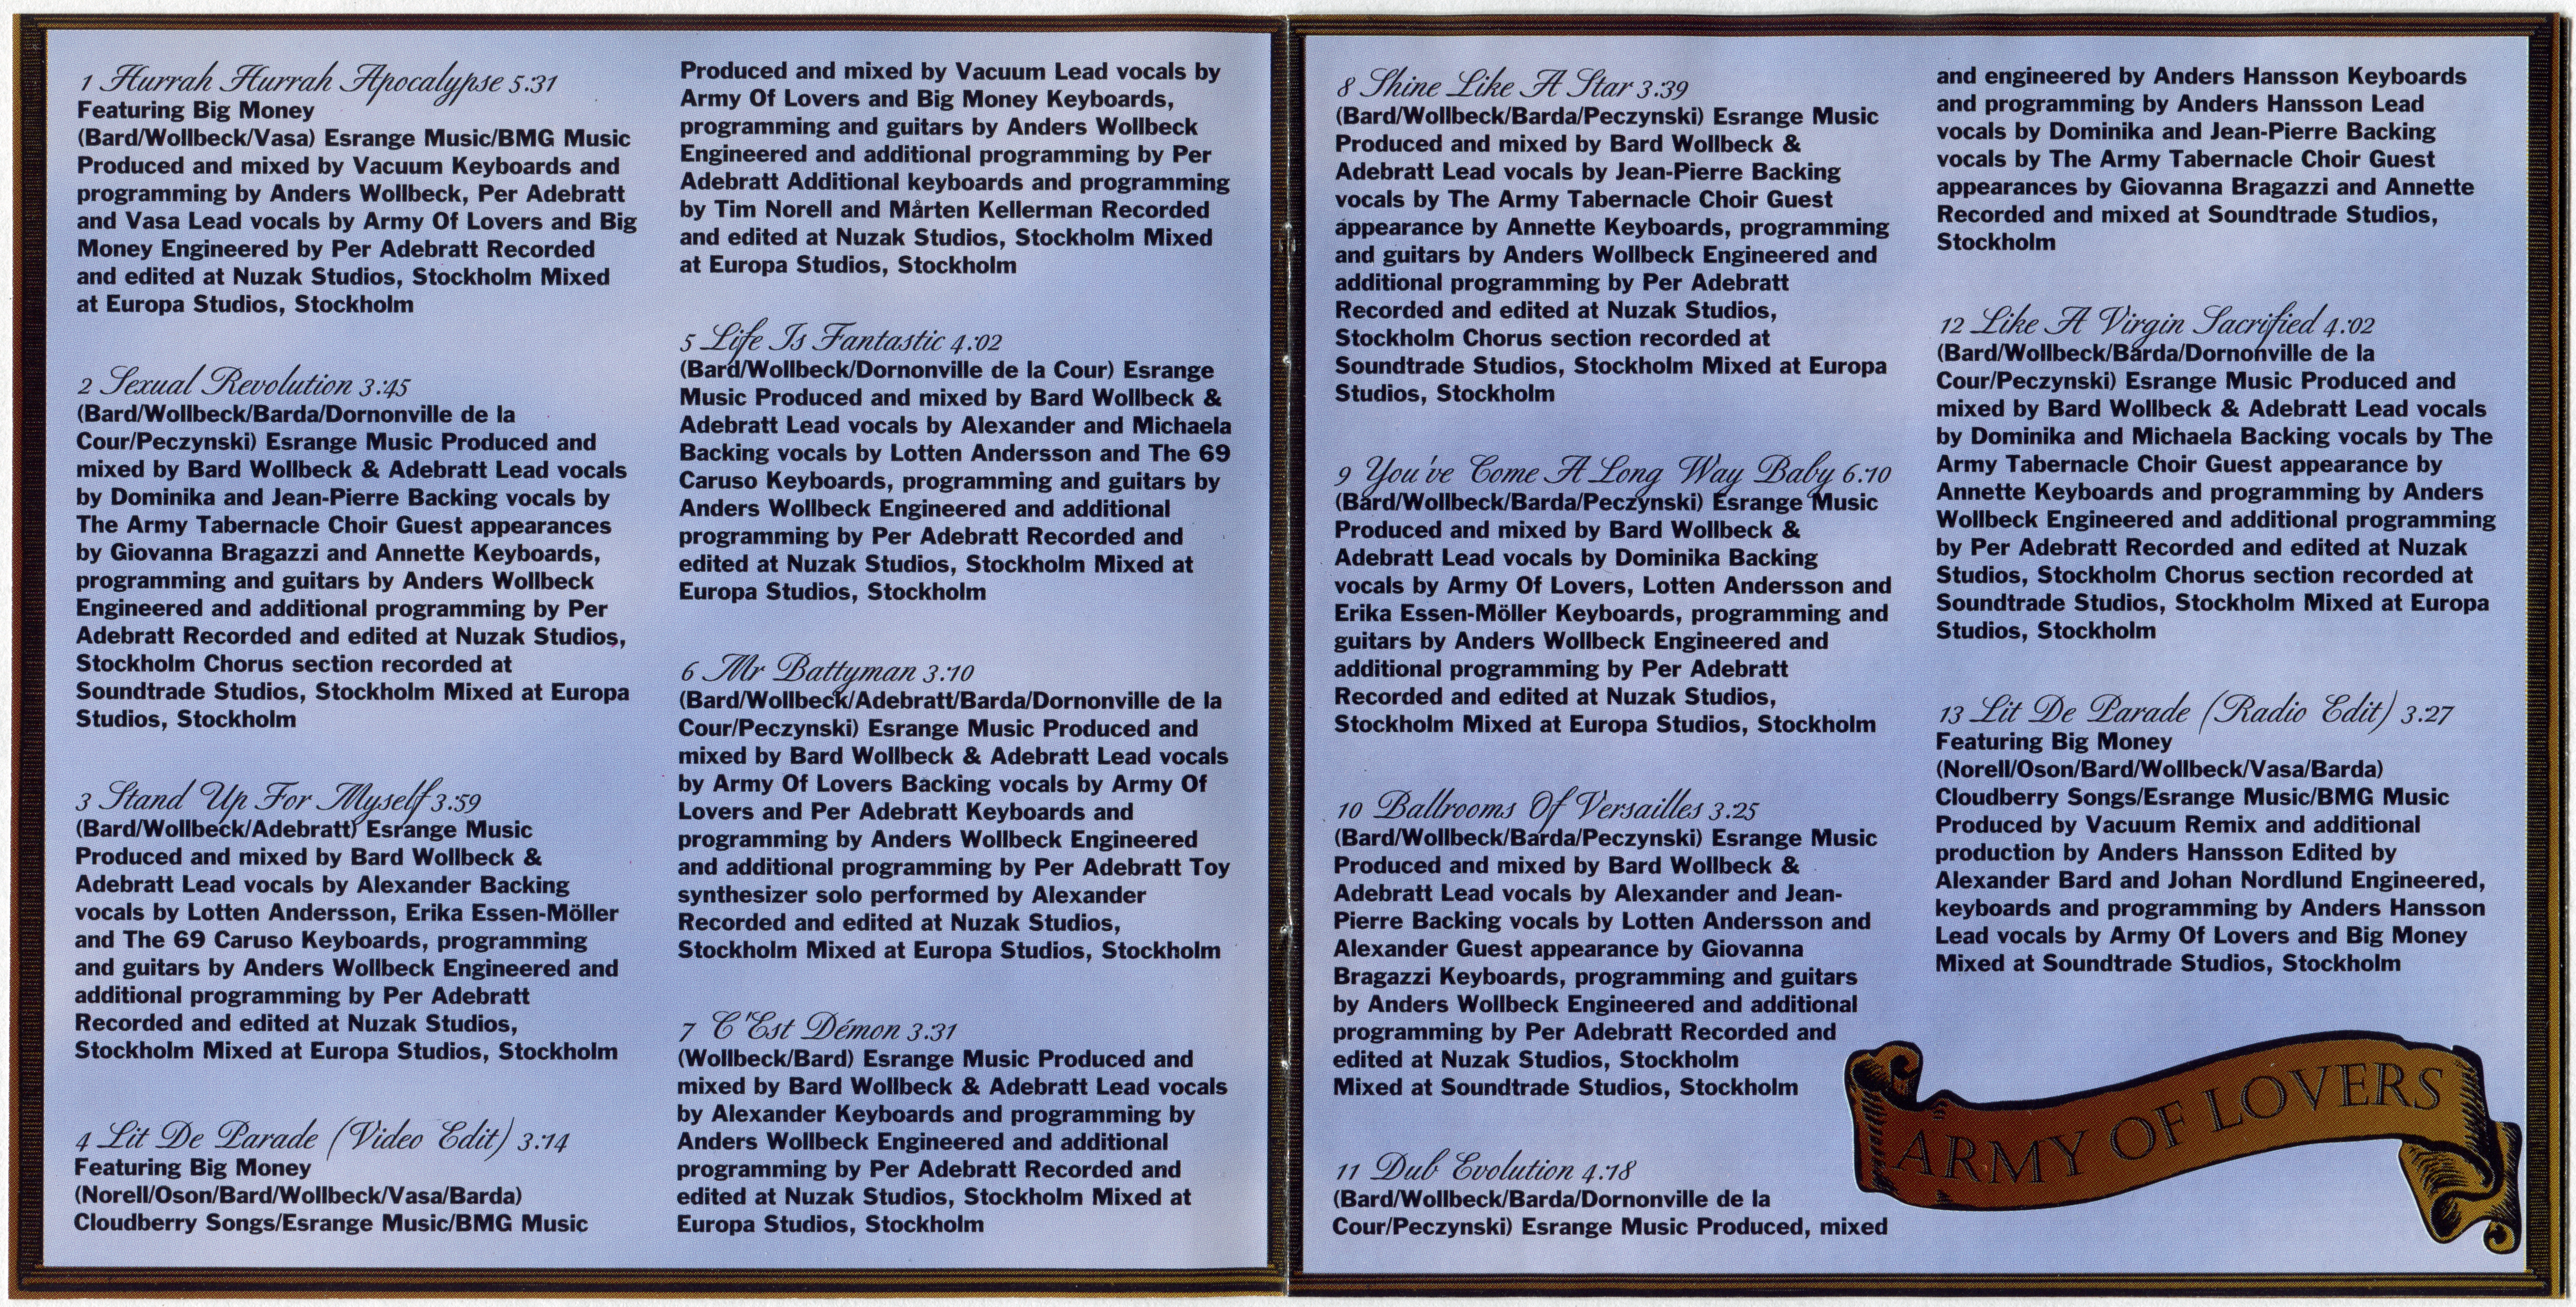 1 Hurrah Hurrah Apocalypse 5:31
Featuring Big Money
(Bard/Wollbeck/Vasa) Esrange Music/BMG Music
Produced and mixed by Vacuum Keyboards and
programming by Anders Wollbeck, Per Adebratt
and Vasa Lead vocals by Army Of Lovers and Big
Money Engineered by Per Adebratt Recorded
and edited at Nuzak Studios, Stockholm Mixed
at Europa Studios, Stockholm
2 Sexual Revolution 3:45
(Bard/Wollbeck/Barda/Dornonville de la
Cour/Peczynski) Esrange Music Produced and
mixed by Bard Wollbeck & Adebratt Lead vocals
by Dominika and Jean-Pierre Backing vocals by
The Army Tabernacle Choir Guest appearances
by Giovanna Bragazzi and Annette Keyboards,
programming and guitars by Anders Wollbeck
Engineered and additional programming by Per
Adebratt Recorded and edited at Nuzak Studios,
Stockholm Chorus section recorded at
Soundtrade Studios, Stockholm Mixed at Europa
Studios, Stockholm
3 Stand Up For Myself 3:59
(Bard/Wollbeck/Adebratt) Esrange Music
Produced and mixed by Bard Wollbeck &
Adebratt Lead vocals by Alexander Backing
vocals by Lotten Andersson, Erika Essen-Möller
and The 69 Caruso Keyboards, programming
and guitars by Anders Wollbeck Engineered and
additional programming by Per Adebratt
Recorded and edited at Nuzak Studios,
Stockholm Mixed at Europa Studios, Stockholm
4 Lit De Parade (Video Edit) 3:14
Featuring Big Money
(Norell/Oson/Bard/Wollbeck/Vasa/Barda)
Cloudberry Songs/Esrange Music/BMG Music
Produced and mixed by Vacuum Lead vocals by
Army Of Lovers and Big Money Keyboards,
programming and guitars by Anders Wollbeck
Engineered and additional programming by Per
Adebratt Additional keyboards and programming
by Tim Norell and Mårten Kellerman Recorded
and edited at Nuzak Studios, Stockholm Mixed
at Europa Studios, Stockholm
5 Life Is Fantastic 4:02
(Bard/Wollbeck/Dornonville de la Cour) Esrange
Music Produced and mixed by Bard Wollbeck &
Adebratt Lead vocals by Alexander and Michaela
Backing vocals by Lotten Andersson and The 69
Caruso Keyboards, programming and guitars by
Anders Wollbeck Engineered and additional
programming by Per Adebratt Recorded and
edited at Nuzak Studios, Stockholm Mixed at
Europa Studios, Stockholm
6 Mr Battyman 3:10
(Bard/Wollbeck/Adebratt/Barda/Dornonville de la
Cour/Peczynski) Esrange Music Produced and
mixed by Bard Wollbeck & Adebratt Lead vocals
by Army Of Lovers Backing vocals by Army Of
Lovers and Per Adebratt Keyboards and
programming by Anders Wollbeck Engineered
and additional programming by Per Adebratt Toy
synthesizer solo performed by Alexander
Recorded and edited at Nuzak Studios,
Stockholm Mixed at Europa Studios, Stockholm
7 C'Est Démon 3:31
(Wollbeck/Bard) Esrange Music Produced and
mixed by Bard Wollbeck & Adebratt Lead vocals
by Alexander Keyboards and programming by
Anders Wollbeck Engineered and additional
programming by Per Adebratt Recorded and
edited at Nuzak Studios, Stockholm Mixed at
Europa Studios, Stockholm
8 Shine Like A Star 3:39
(Bard/Wollbeck/Barda/Peczynski) Esrange Music
Produced and mixed by Bard Wollbeck &
Adebratt Lead vocals by Jean-Pierre Backing
vocals by The Army Tabernacle Choir Guest
appearance by Annette Keyboards, programming
and guitars by Anders Wollbeck Engineered and
additional programming by Per Adebratt
Recorded and edited at Nuzak Studios,
Stockholm Chorus section recorded at
Soundtrade Studios, Stockholm Mixed at Europa
Studios, Stockholm
9 You've Come A Long Way Baby 6:10
(Bard/Wollbeck/Barda/Peczynski) Esrange Music
Produced and mixed by Bard Wollbeck &
Adebratt Lead vocals by Dominika Backing
vocals by Army Of Lovers, Lotten Andersson and
Erika Essen-Möller Keyboards, programming and
guitars by Anders Wollbeck Engineered and
additional programming by Per Adebratt
Recorded and edited at Nuzak Studios,
Stockholm Mixed at Europa Studios, Stockholm
10 Ballrooms Of Versailles 3:25
(Bard/Wollbeck/Barda/Peczynski) Esrange Music
Produced and mixed by Bard Wollbeck &
Adebratt Lead vocals by Alexander and Jean-
Pierre Backing vocals by Lotten Andersson and
Alexander Guest appearance by Giovanna
Bragazzi Keyboards, programming and guitars
by Anders Wollbeck Engineered and additional
programming by Per Adebratt Recorded and
edited at Nuzak Studios, Stockholm
Mixed at Soundtrade Studios, Stockholm
11 Dub Evolution 4:18
(Bard/Wollbeck/Barda/Dornonville de la
Cour/Peczynski) Esrange Music Produced, mixed
and engineered by Anders Hansson Keyboards
and programming by Anders Hansson Lead
vocals by Dominika and Jean-Pierre Backing
vocals by The Army Tabernacle Choir Guest
appearances by Giovanna Bragazzi and Annette
Recorded and mixed at Soundtrade Studios,
Stockholm
12 Like A Virgin Sacrified 4:02
(Bard/Wollbeck/Barda/Dornonville de la
Cour/Peczynski) Esrange Music Produced and
mixed by Bard Wollbeck & Adebratt Lead vocals
by Dominika and Michaela Backing vocals by The
Army Tabernacle Choir Guest appearance by
Annette Keyboards and programming by Anders
Wollbeck Engineered and additional programming
by Per Adebratt Recorded and edited at Nuzak
Studios, Stockholm Chorus section recorded at
Soundtrade Studios, Stockholm Mixed at Europa
Studios, Stockholm
13 Lit De Parade (Radio Edit) 3:27
Featuring Big Money
(Norell/Oson/Bard/Wollbeck/Vasa/Barda)
Cloudberry Songs/Esrange Music/BMG Music
Produced by Vacuum Remix and additional
production by Anders Hansson Edited by
Alexander Bard and Johan Nordlund Engineered,
keyboards and programming by Anders Hansson
Lead vocals by Army Of Lovers and Big Money
Mixed at Soundtrade Studios, Stockholm
ARMY OF LOVERS